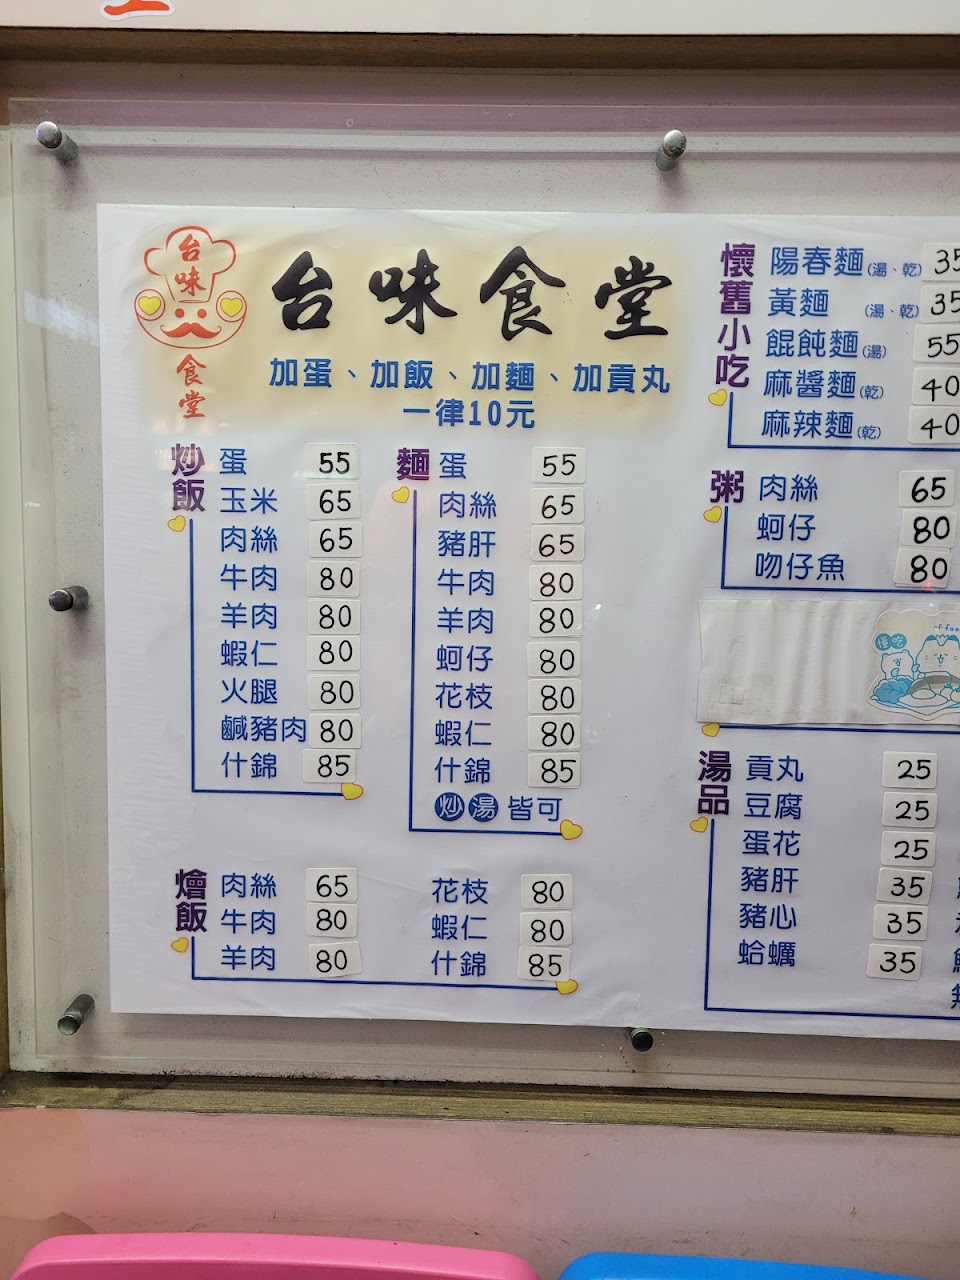 台味
食堂
台味食堂
加蛋、加飯、加麵、加貢丸
一律10元
炒飯
蛋 55
玉米 65
肉絲 65
牛肉 80
羊肉 80
蝦仁 80
火腿 80
鹹豬肉 80
什錦 85
麵
蛋 55
肉絲 65
豬肝 65
牛肉 80
羊肉 80
蚵仔 80
花枝 80
蝦仁 80
什錦 85
炒 湯 皆可
燴飯
肉絲 65
牛肉 80
羊肉 80
花枝 80
蝦仁 80
什錦 85
懷舊小吃
陽春麵(湯、乾) 35
黃麵 (湯、乾) 35
餛飩麵(湯) 55
麻醬麵(乾) 40
麻辣麵(乾) 40
粥
肉絲 65
蚵仔 80
吻仔魚 80
湯品
貢丸 25
豆腐 25
蛋花 25
豬肝 35
豬心 35
蛤蠣 35